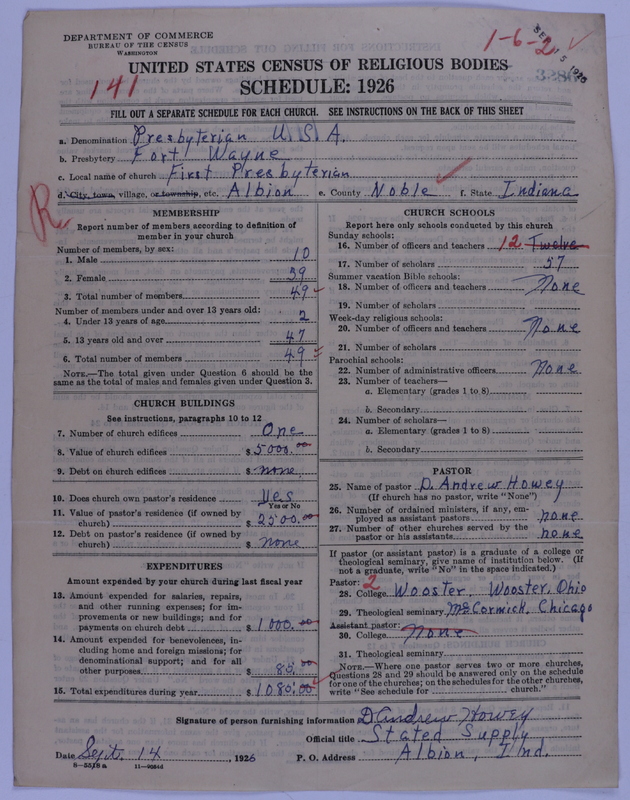 DEPARTMENT OF COMMERCE
BUREAU OF THE CENSUS
WASHINGTON
1-6-2 ✓
SEP 15 1926
141
UNITED STATES CENSUS OF RELIGIOUS BODIES
SCHEDULE: 1926
FILL OUT A SEPARATE SCHEDULE FOR EACH CHURCH. SEE INSTRUCTIONS ON THE BACK OF THIS SHEET
a. Denomination Presbyterian U. S. A.
b. Presbytery Fort Wayne
c. Local name of church First Presbyterian
d. City, town, village, or township, etc. Albion e. County Noble f. State Indiana
R
MEMBERSHIP
Report number of members according to definition of
member in your church
Number of members, by sex:
1. Male 10
2. Female 39
3. Total number of members 49
Number of members under and over 13 years old:
4. Under 13 years of age 2
5. 13 years old and over 47
6. Total number of members 49
NOTE.—The total given under Question 6 should be the
same as the total of males and females given under Question 3.
CHURCH BUILDINGS
See instructions, paragraphs 10 to 12
7. Number of church edifices One
8. Value of church edifices $ 5000.00
9. Debt on church edifices $ none
10. Does church own pastor's residence Yes
Yes or No
11. Value of pastor's residence (if owned by
church) $ 2500.00
12. Debt on pastor's residence (if owned by
church) $ none
EXPENDITURES
Amount expended by your church during last fiscal year
13. Amount expended for salaries, repairs,
and other running expenses; for im-
provements or new buildings; and for
payments on church debt $ 1000.00
14. Amount expended for benevolences, in-
cluding home and foreign missions; for
denominational support; and for all
other purposes $ 80.00
15. Total expenditures during year $ 1080.00
CHURCH SCHOOLS
Report here only schools conducted by this church
Sunday schools:
16. Number of officers and teachers 12 Twelve
17. Number of scholars 57
Summer vacation Bible schools:
18. Number of officers and teachers None
19. Number of scholars
Week-day religious schools:
20. Number of officers and teachers None
21. Number of scholars
Parochial schools:
22. Number of administrative officers None
23. Number of teachers—
a. Elementary (grades 1 to 8)
b. Secondary
24. Number of scholars—
a. Elementary (grades 1 to 8)
b. Secondary
PASTOR
25. Name of pastor D. Andrew Howey
(If church has no pastor, write "None")
26. Number of ordained ministers, if any, em-
ployed as assistant pastors none
27. Number of other churches served by the
pastor or his assistants none
If pastor (or assistant pastor) is a graduate of a college or
theological seminary, give name of institution below. (If
not a graduate, write "No" in the space indicated.)
Pastor: 2
28. College Wooster, Wooster, Ohio
29. Theological seminary McCormick, Chicago
Assistant pastor:
30. College None
31. Theological seminary
NOTE.—Where one pastor serves two or more churches,
Questions 28 and 29 should be answered only on the schedule
for one of the churches; on the schedules for the other churches,
write "See schedule for church."
Signature of person furnishing information D. Andrew Howey
Official title Stated Supply
Date Sept. 14, 1926 P. O. Address Albion, Ind.
8-5518a 11-9954d